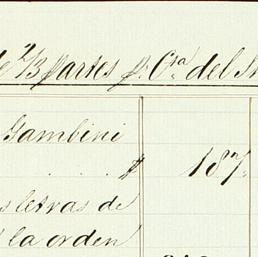 2/3 partes p. Cta del
Gambini
$ 187
letras de
la orden